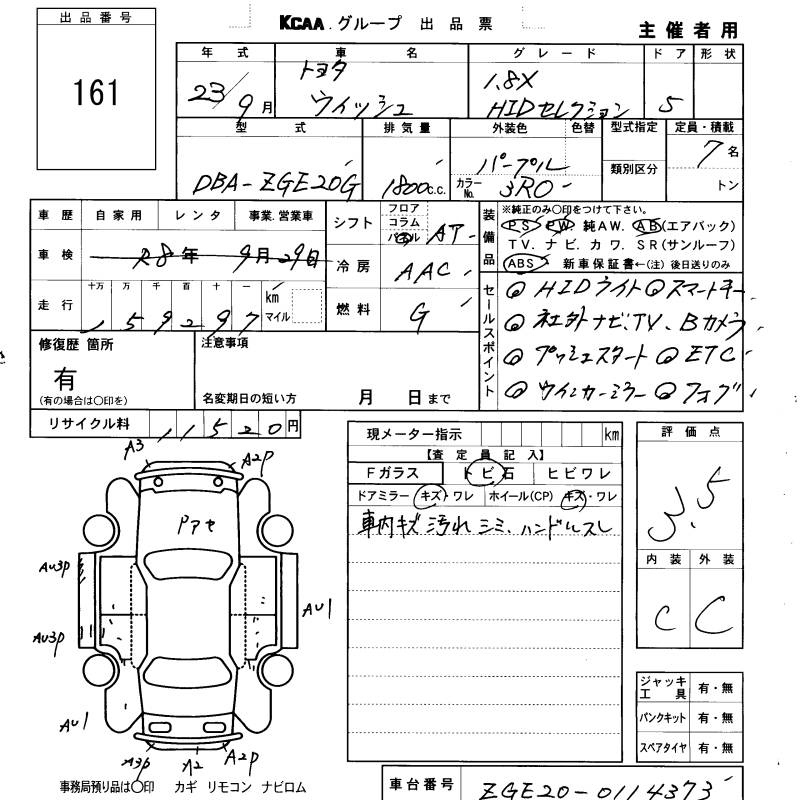 出品番号
161
KCAA.グループ 出品票
主催者用
年式 車名 グレード ドア 形状
23/9月 トヨタ ウィッシュ 1.8X HIDセレクション 5
型式 排気量 外装色 色替 型式指定 定員・積載
DBA-ZGE20G 1800c.c. パープル 7名
カラーNo. 3R0 類別区分 トン
車歴 自家用 レンタ 事業.営業車
車検 R8年 9月29日
走行 十万 万 千 百 十 一 km マイル
159297
シフト フロア コラム パネル AT
冷房 AAC
燃料 G
装備品 ※純正のみ○印をつけて下さい。
PS PW 純AW. AB(エアバック)
TV. ナビ. カワ. SR(サンルーフ)
ABS 新車保証書←(注)後日送りのみ
セールスポイント
◎HIDライト ◎スマートキー
◎社外ナビ、TV、Bカメラ
◎プッシュスタート ◎ETC
◎ウインカーミラー ◎フォグ
修復歴 箇所
有
(有の場合は○印を)
注意事項
名変期日の短い方 月 日まで
リサイクル料 11520円
現メーター指示 km
【査定員記入】
Fガラス トビ石 ヒビワレ
ドアミラー キズ・ワレ ホイール(CP) キズ・ワレ
車内キズ 汚れ シミ、ハンドルスレ
評価点
3.5
内装 外装
C C
ジャッキ工具 有・無
パンクキット 有・無
スペアタイヤ 有・無
A3 A2P
Pアセ
AU3P
AU3P
AU1
AU1
A3P A2 A2P
事務局預り品は○印 カギ リモコン ナビロム
車台番号 ZGE20-0114373